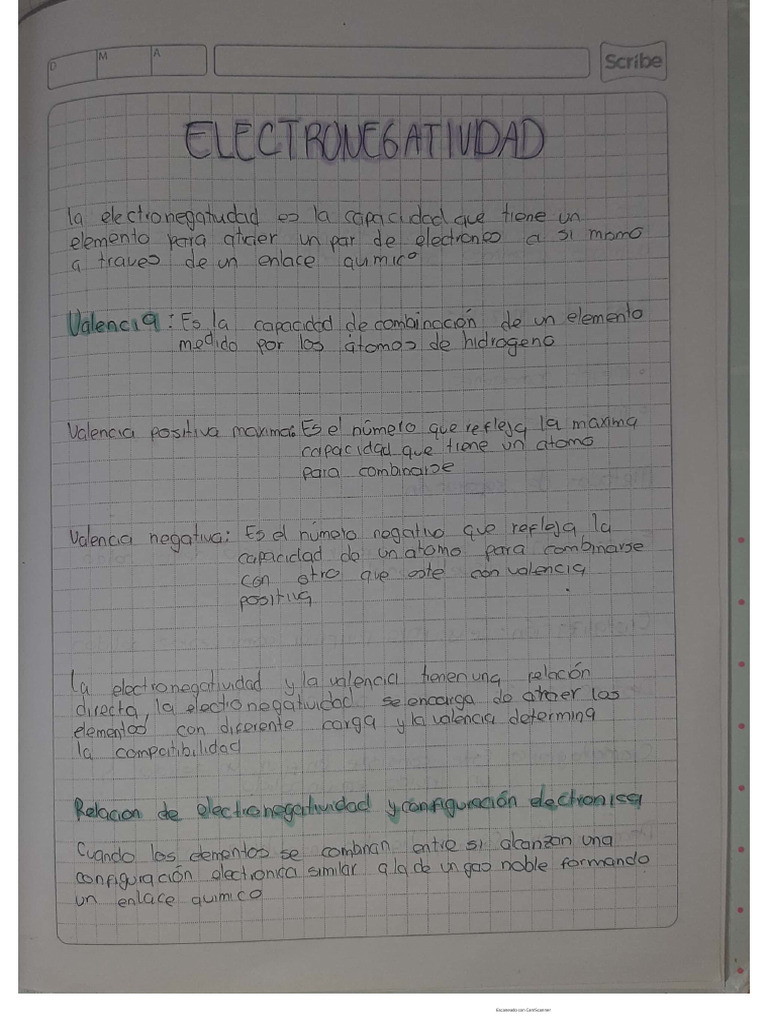 D
M
A
Scribe
ELECTRONEGATIVIDAD
la electronegatividad es la capacidad que tiene un
elemento para atraer un par de electrones a si mismo
a traves de un enlace quimico
Valencia: Es la capacidad de combinación de un elemento
medido por los átomos de hidrogeno
Valencia positiva maxima: Es el número que refleja la maxima
capacidad que tiene un atomo
para combinarse
Valencia negativa: Es el número negativo que refleja la
capacidad de un atomo para combinarse
con otro que este con valencia
positiva
La electronegatividad y la valencia tienen una relación
directa, la electronegatividad se encarga de atraer los
elementos con diferente carga y la valencia determina
la compatibilidad
Relacion de electronegatividad y configuración electronica
Cuando los elementos se combinan entre si alcanzan una
configuración electronica similar a la de un gas noble formando
un enlace quimico
Escaneado con CamScanner